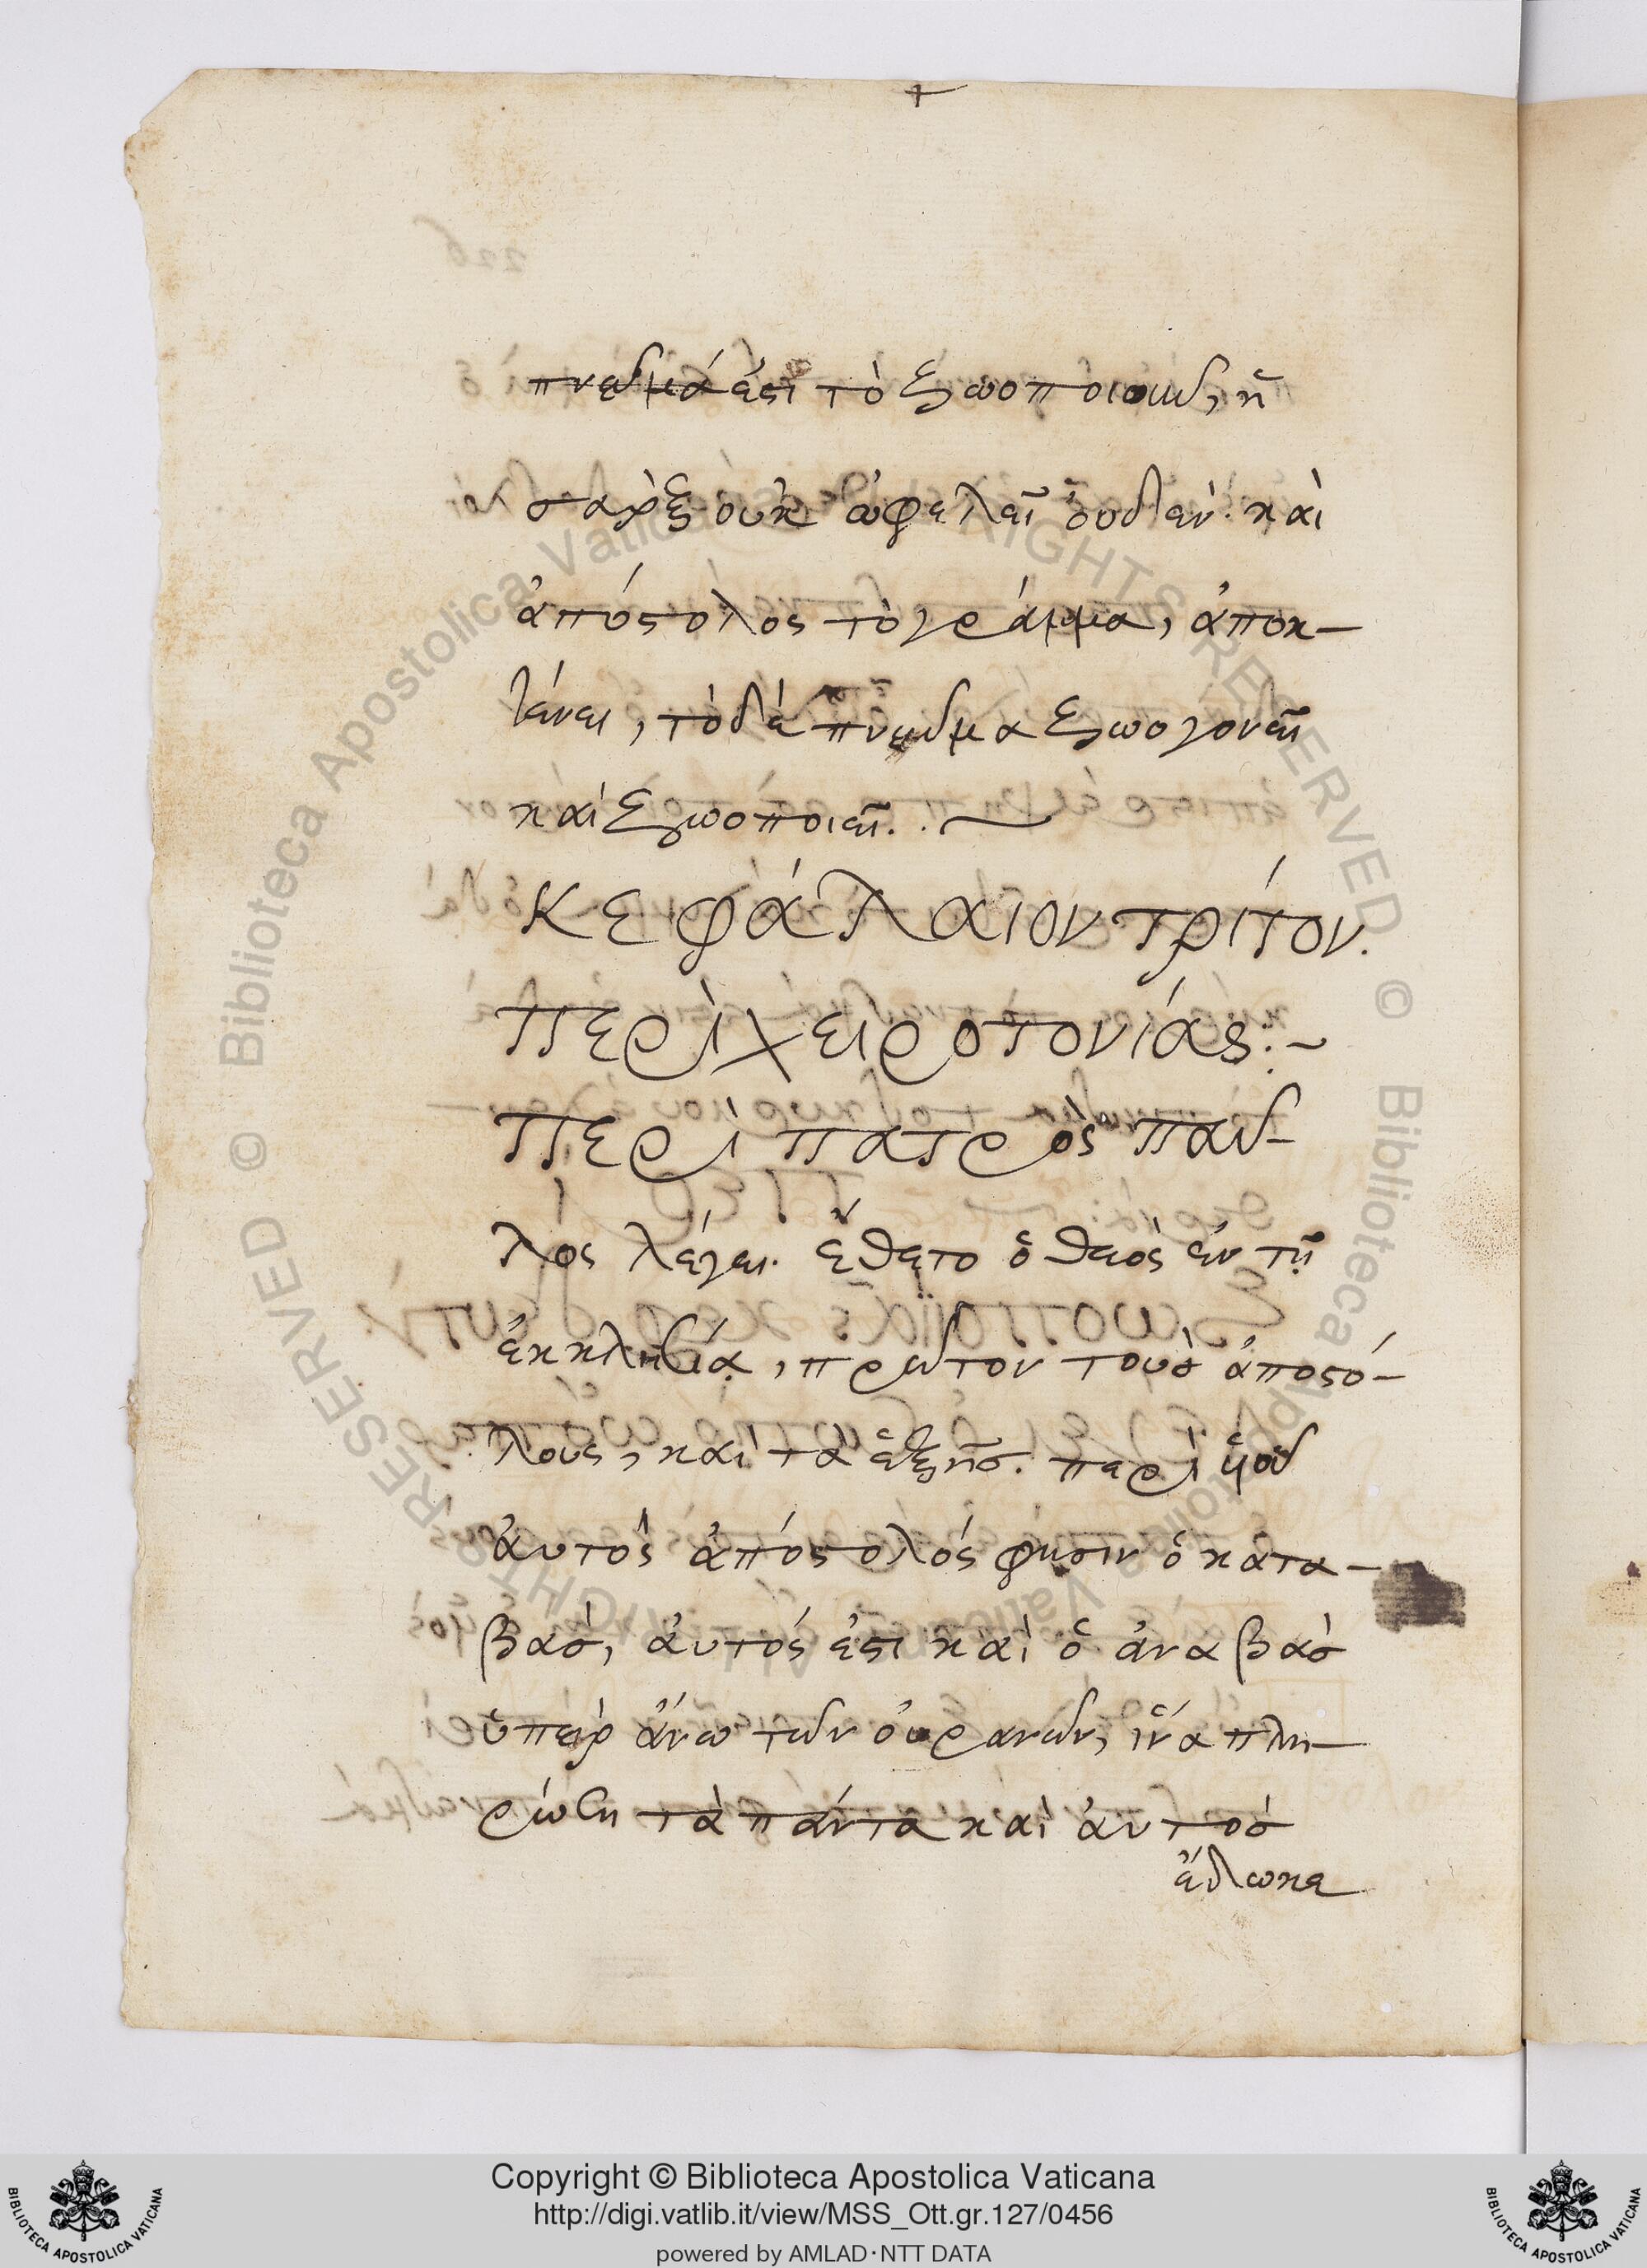 πνεῦμά ἐστι τὸ ζωοποιοῦν, ἡ
σαρξ ουκ ὠφελεῖ ὀυδέν. καὶ
ἀπόστολος τὸ γράμμα, ἀποκ-
τένει, τὸ δὲ πνεῦμα ζωογονεῖ
καὶ ζωοποιεῖ.
Κεφάλαιον τρίτον.
Περὶ χειροτονίας:~
Περὶ πατρὸς παῦ-
λος λέγει. ἔθετο ὁ θεὸς ἐν τῇ
ἐκκλησίᾳ, πρῶτον τοὺς ἀποστό-
λους, καὶ τα ἑξῆσ. περὶ ὑιοῦ
ἀυτὸς ἀπόστολός φησιν ὁ κατα-
βὰσ, ἀυτός ἐστι καὶ ὁ ἀναβὰσ
ὑπὲρ ἄνω τῶν ὀυρανῶν, ἵνα πλη-
ρώση τὰ πάντα καὶ ἀυτὸσ
ἔδωκε
Copyright © Biblioteca Apostolica Vaticana
http://digi.vatlib.it/view/MSS_Ott.gr.127/0456
powered by AMLAD·NTT DATA
BIBLIOTECA APOSTOLICA VATICANA
BIBLIOTECA APOSTOLICA VATICANA